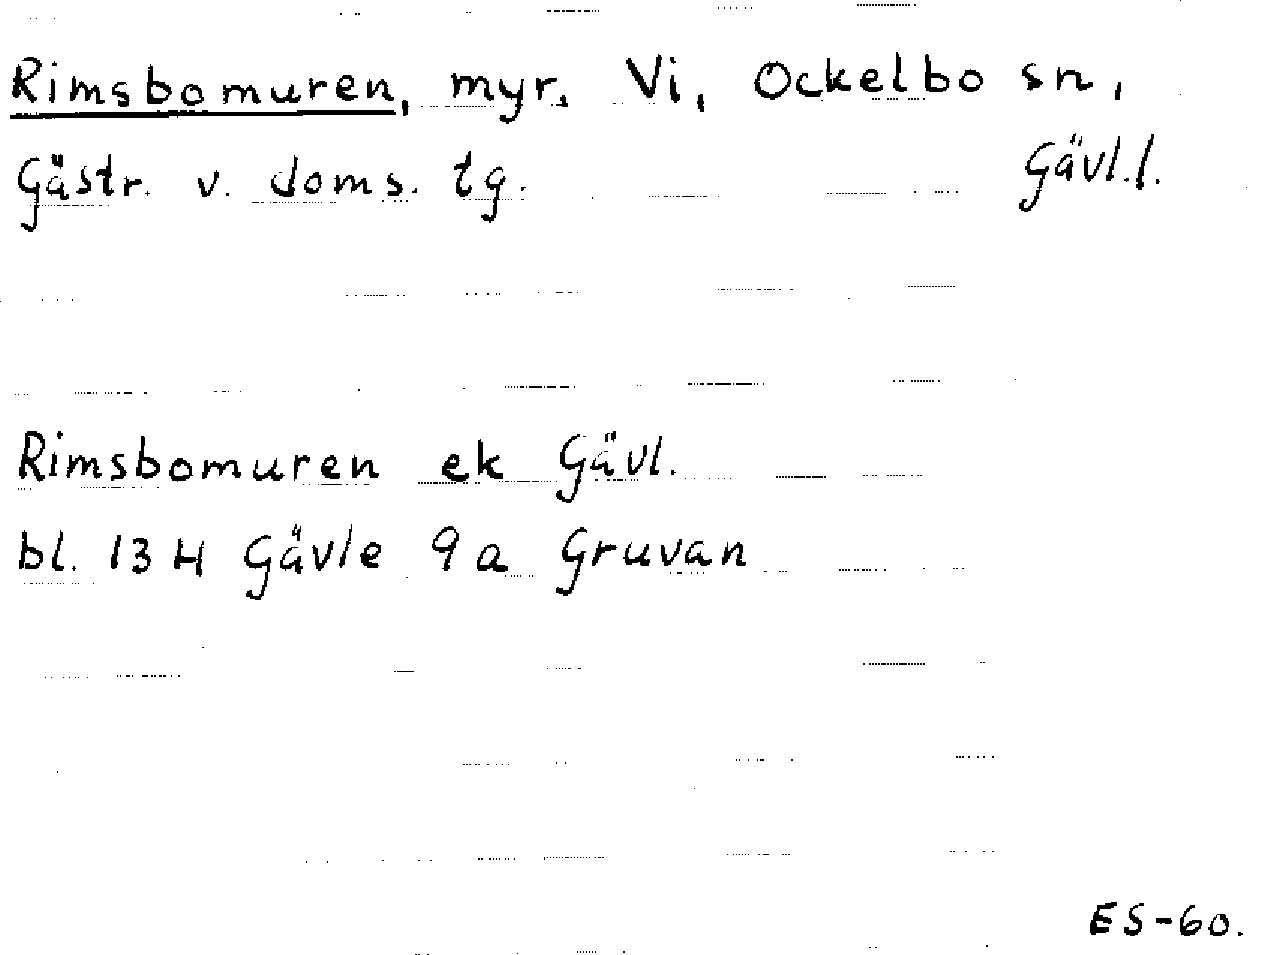 Rimsbomuren, myr, Vi, Ockelbo sn,
Gästr. v. doms. tg. Gävl.l.
Rimsbomuren ek Gävl.
bl. 13 H Gävle 9 a Gruvan
ES-60.